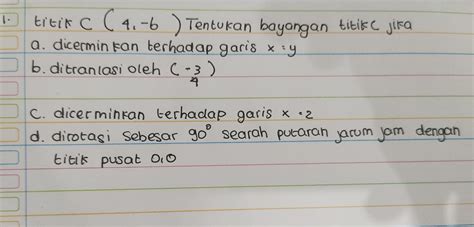 1. titik C (4,-6) Tentukan bayangan titik C jika
a. dicerminkan terhadap garis x = y
b. ditranlasi oleh (-3)
4
C. dicerminkan terhadap garis x = 2
d. dirotasi sebesar 90° searah putaran jarum jam dengan
titik pusat 0,0